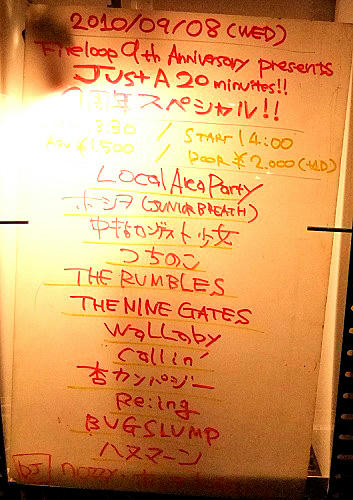 2010/09/08 (WED)
Fireloop 9th Anniversary presents
JUST A 20 minutes!!
9周年スペシャル!!
3:30 / START 14:00
ADV ¥1,500 / DOOR ¥2,000 (+1D)
Local Area Party
ホーシヲ (JUNIOR BREATH)
少女
つちのこ
THE RUMBLES
THE NINE GATES
Wallaby
Callin'
杏カンパジー
Re:ing
BUGSLUMP
ハスマーン
DJ